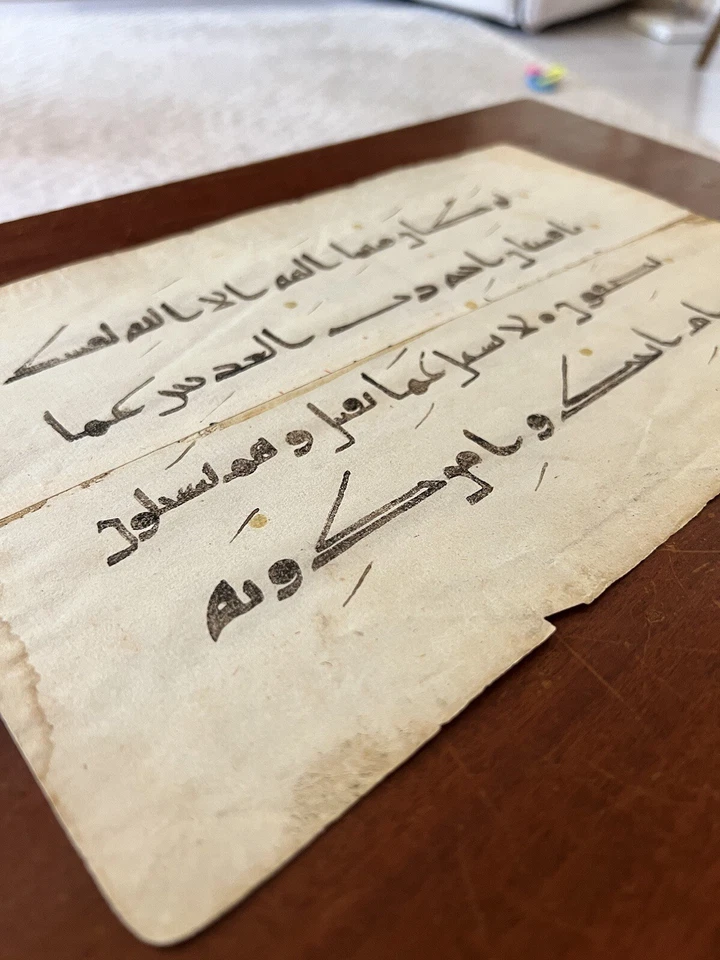 لو كان فيهما الهه الا الله لفسد
تا فسبحن الله رب العرش عما
يصفون لا يسل عما يفعل وهم يسلون
ام اتخذوا من دونه